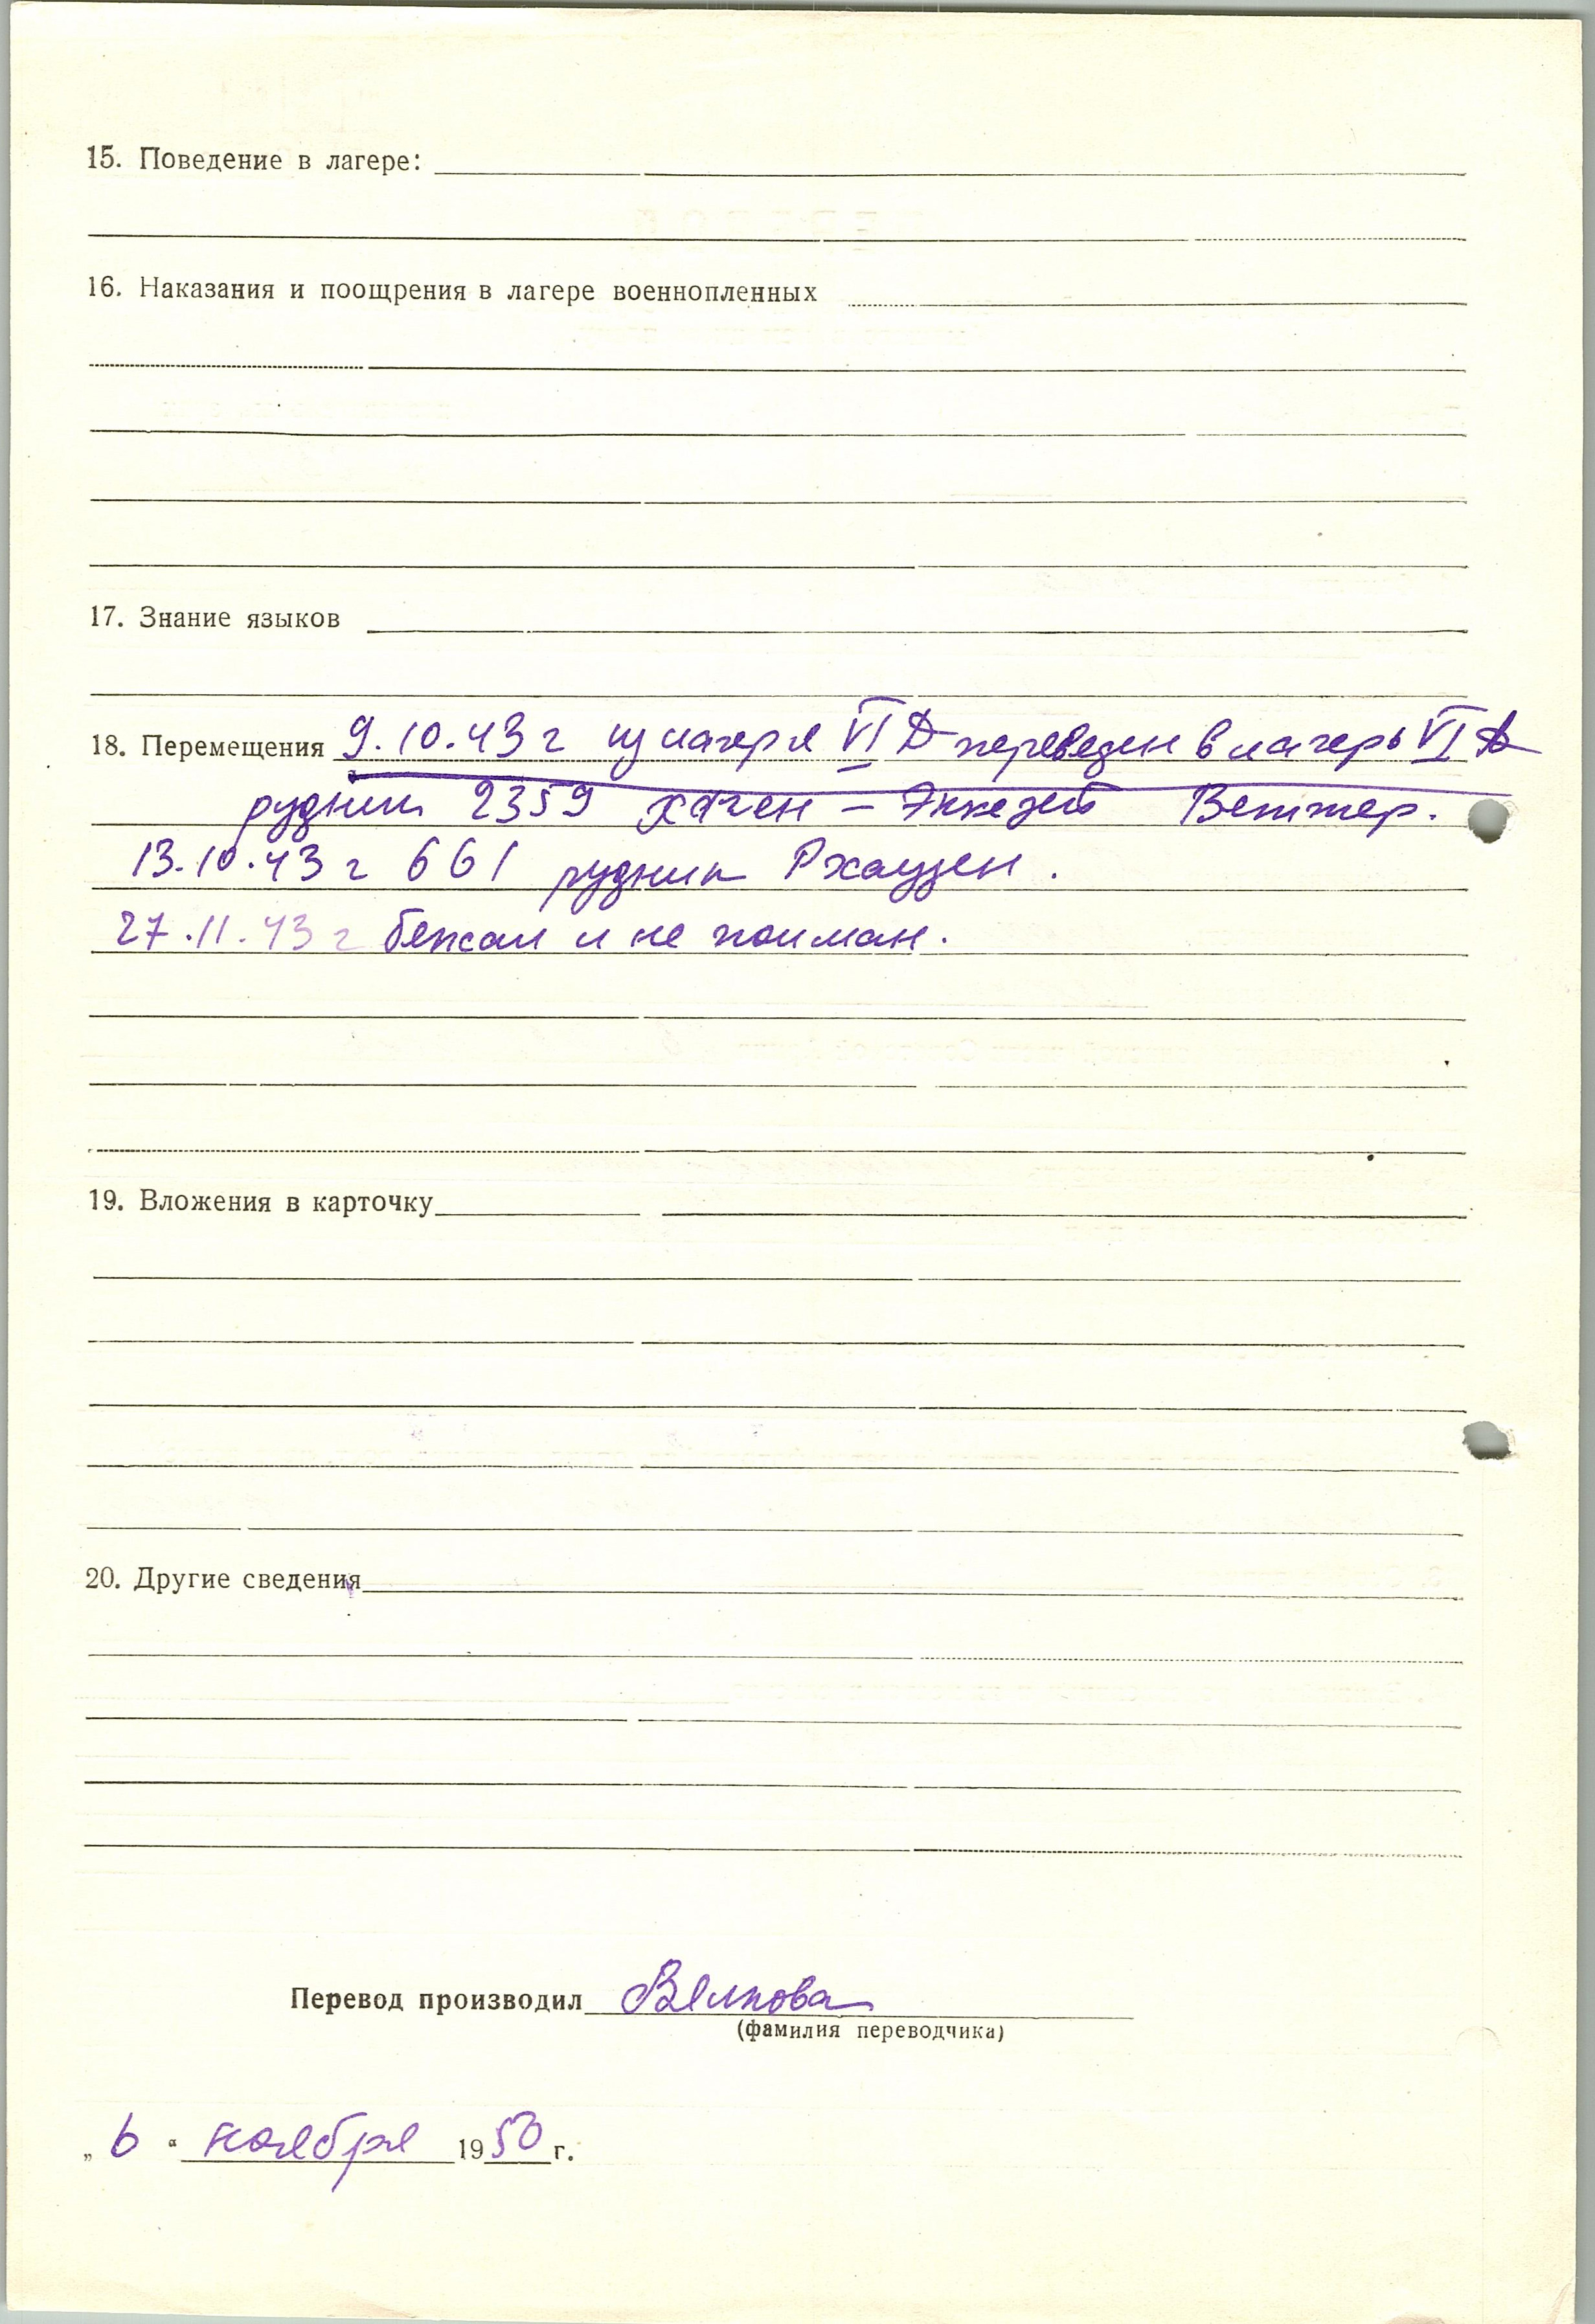 15. Поведение в лагере:
16. Наказания и поощрения в лагере военнопленных
17. Знание языков
18. Перемещения 9.10.43 г из лагеря VI Д переведен в лагерь VI А
рудник 2359 Хаген – Эккезей Веттер.
13.10.43 г 661 рудник Рхаузен.
27.11.43 г бежал и не пойман.
19. Вложения в карточку
20. Другие сведения
Перевод производил
(фамилия переводчика)
„ 6 “ ноября 1950 г.